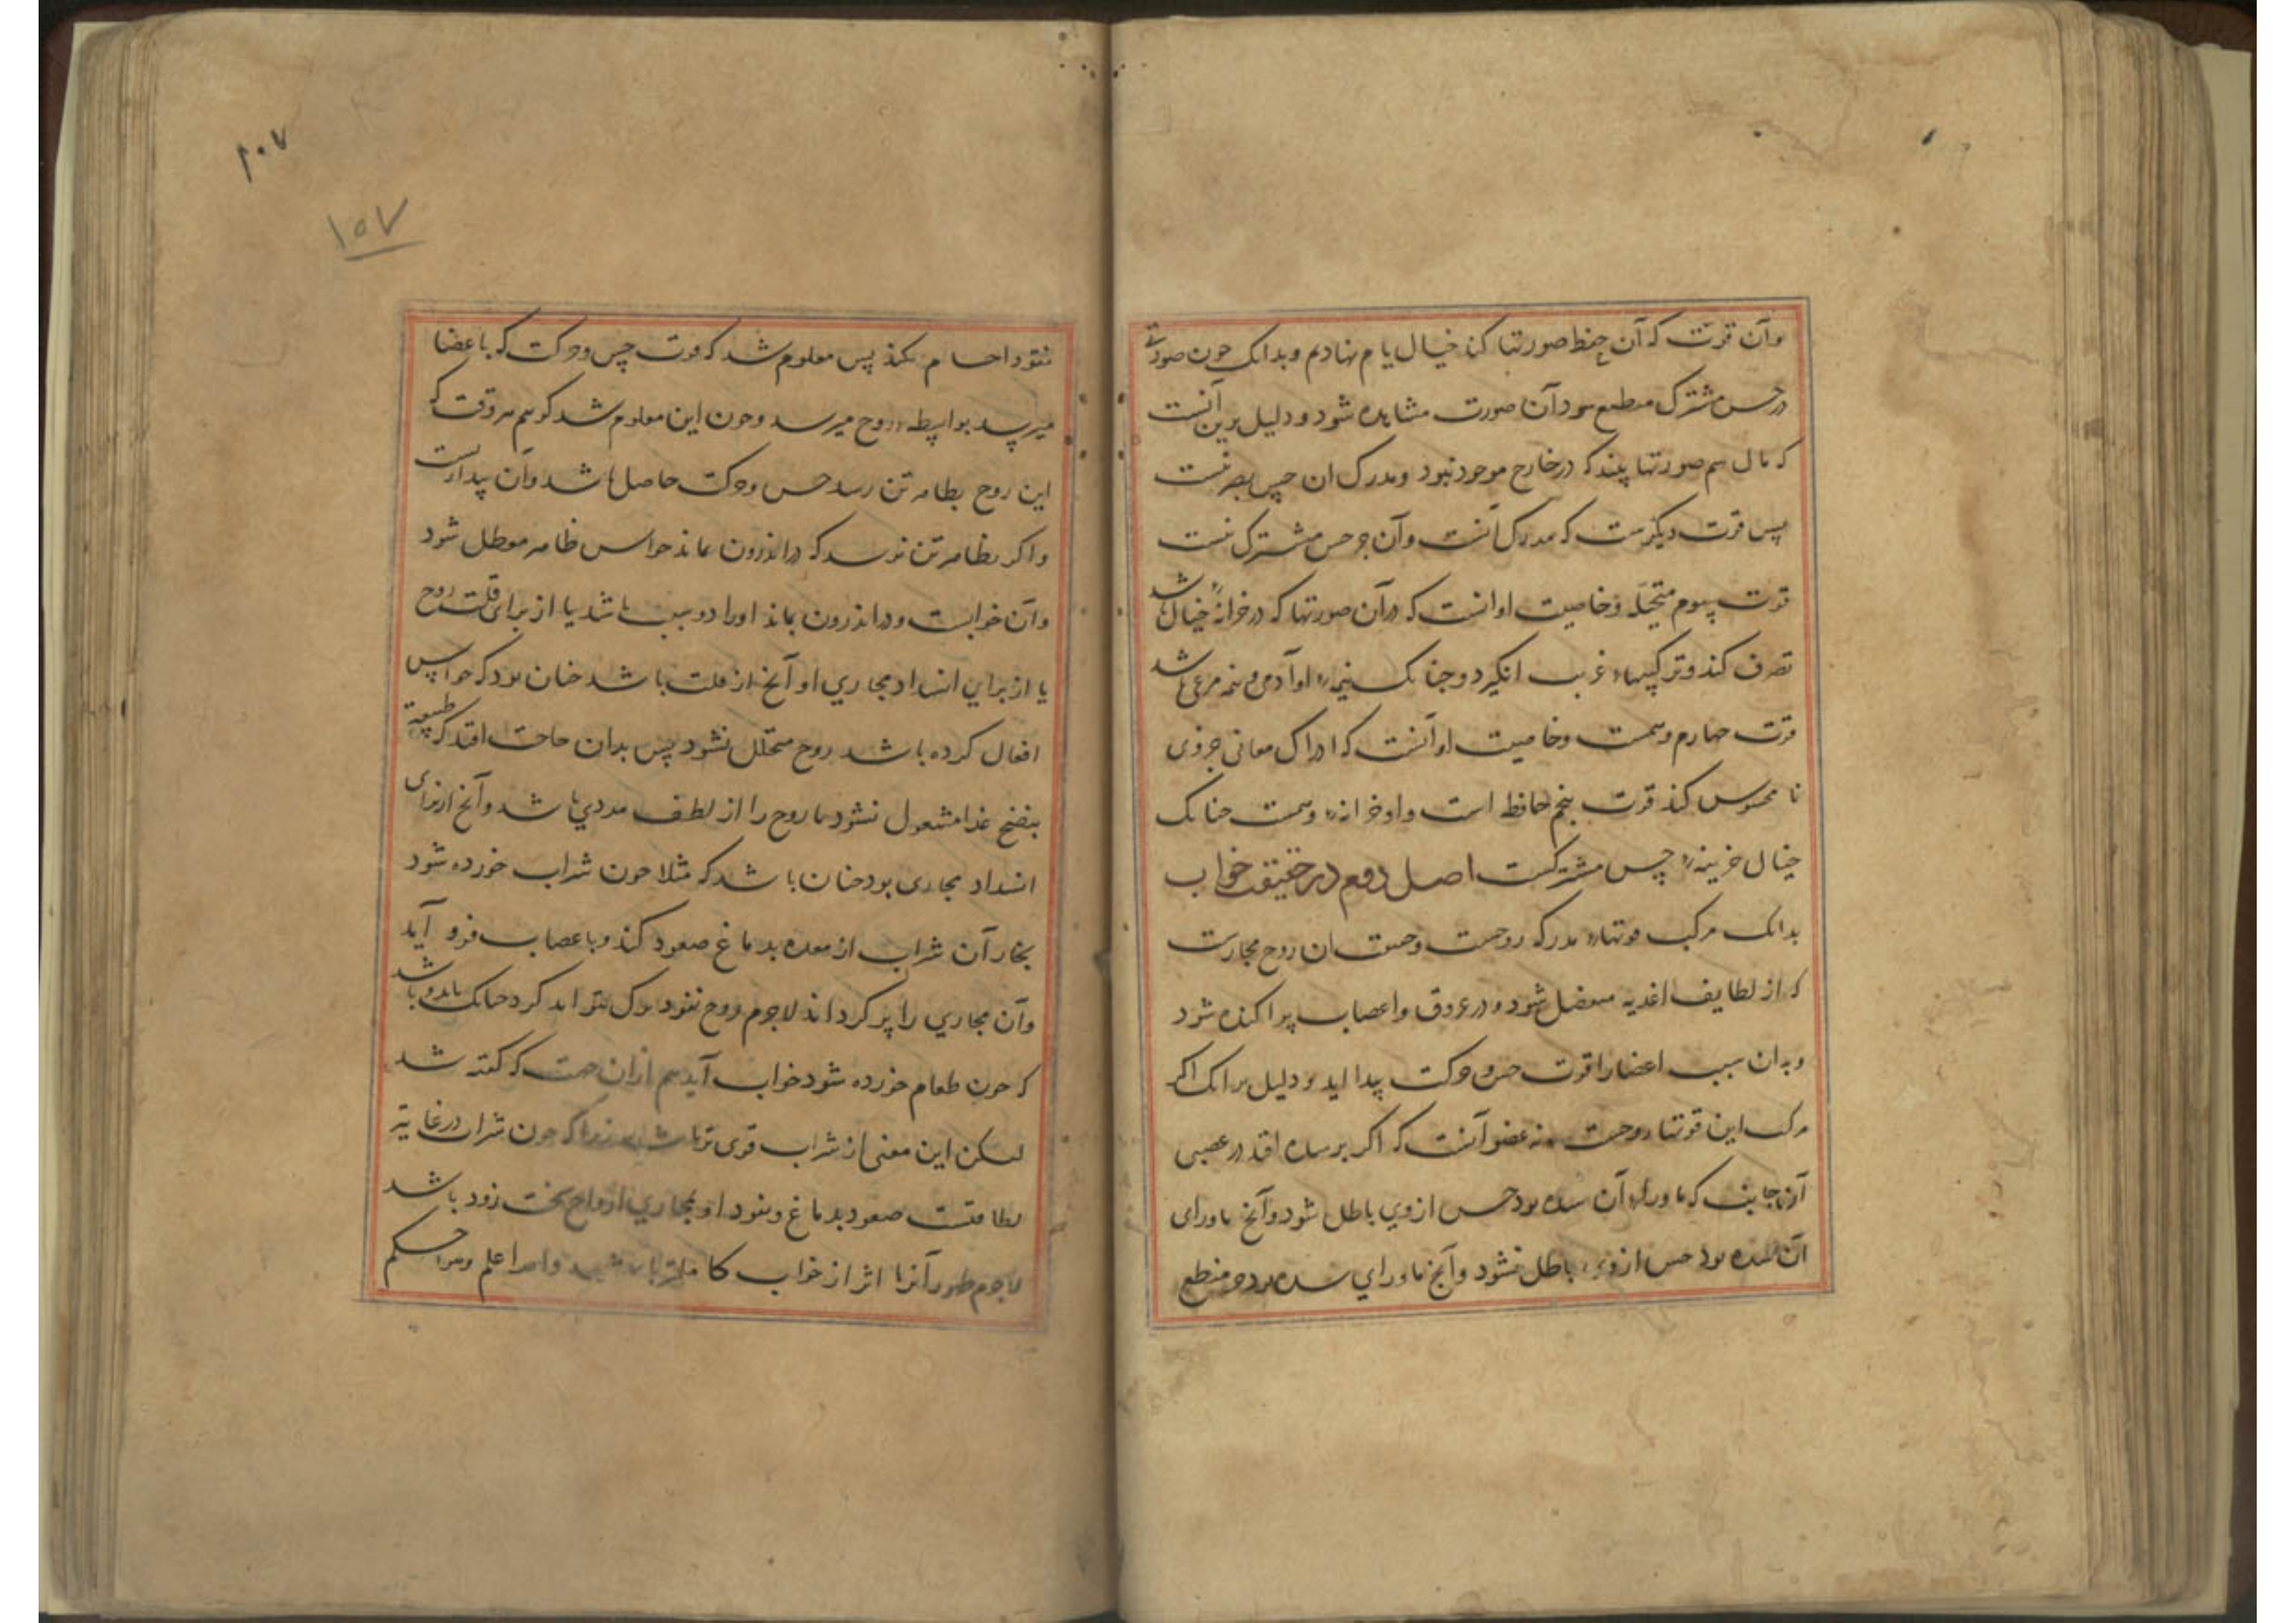 وآن قوتست که آن حفظ صورتها کند خیال یا م نهادیم وبدانک چون صورتی
در حس مشترک منطبع شود آن صورت مشاهده شود ودلیل برین آنست
که ما ل هم صورتها بیند که در خارج موجود نبود ومدرک ان حس بصر نیست
پس قوت دیگرست که مدرک آنست وآن جز حس مشترک نیست
قوت سیوم متخیله وخاصیت او انست که در آن صورتها که در خزانه خیال باشد
تصرف کند وترکیبهاء غریب انگیزد وجنانک نیمهٔ او آدمی ونیمه مرغی باشد
قوت چهارم وهمست وخاصیت او آنست که ادراک معانی جزوی
نا محسوس کند قوت پنجم حافظه است واو خزانهٔ وهمست جنانک
خیال خزینهٔ حس مشترکست اصل دوم در حقیقت خواب
بدانک مرکب قوتهاء مدرکه روحست وحقیقت ان روح بخارست
که از لطایف اغذیه منفصل شود ودر عروق واعصاب پراکنده شود
وبدان سبب اعضا را قوت حس وحرکت پیدا اید ودلیل بر انک
مرکب این قوتها روحست نه عضو آنست که اگر بر سده افتد در عصبی
از آنجانب که ماوراء آن سده بود حس از وی باطل شود وآنچ ماورای
آن سده بود حس از وی باطل نشود وآنچ ماورای سده بود جز منطع
۱۰۷
۱۵۷
نفوذ اجسام نکند پس معلوم شد که قوت حس وحرکت که باعضا
میرسد بواسطه روح میرسد وچون این معلوم شد گوییم هر وقت که
این روح بظاهر تن رسد حس وحرکت حاصل باشد وآن بیداریست
واکر بظاهر تن نرسد که در اندرون بماند حواس ظاهر معطل شود
وآن خوابست ودر اندرون بماند او را دو سبب باشد یا از برای قلت روح
یا از برای انسداد مجاری او آنچ از قلت باشد جنان بود که حواس
افعال کرده باشد روح متحلل نشود پس بدان حاجت افتد که طبیعة
بنضج غذا مشغول نشود تا روح را از لطف مددی باشد وآنچ از برای
انسداد مجاری بود جنان باشد که مثلا چون شراب خورده شود
بخار آن شراب از معده بدماغ صعود کند وباعصاب فرو آید
وآن مجاری را پر کرداند لاجرم روح نفوذ نتواند کرد جنانک
که چون طعام خورده شود خواب آید هم ازان جهت که کفته شد
لیکن این معنی از شراب قوی تر باشد زیرا که چون شراب در غایة
لطافتست صعود بدماغ ونفوذ او بمجاری ارواح سخت زود باشد
لاجرم ظهور آنرا اثر از خواب کاملتر باشد والله اعلم واحکم